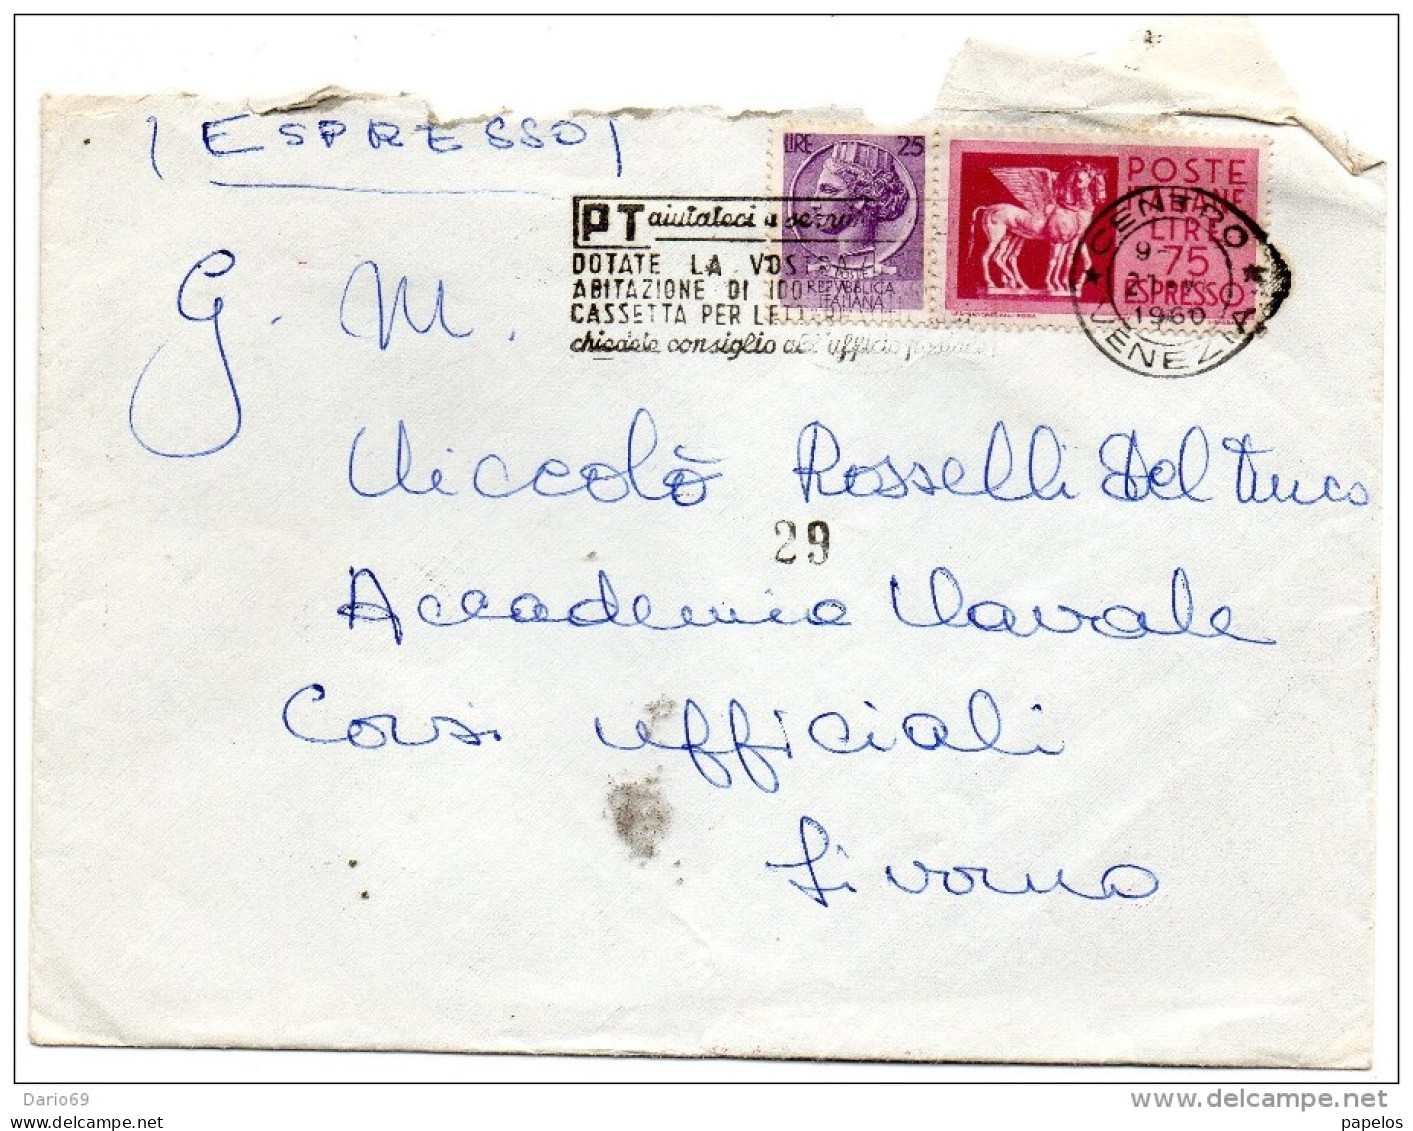 ESPRESSO
LIRE 25
POSTE
REPVBBLICA
ITALIANA
POSTE
ITALIANE
LIRE
75
ESPRESSO
CENTRO
9-
1960
VENEZIA
PT aiutateci a
DOTATE LA VOSTRA
ABITAZIONE DI
CASSETTA PER LETTERE
chiedete consiglio all'ufficio postale
G. M.
Niccolò Rosselli Del Turco
29
Accademia Navale
Corsi ufficiali
Livorno
Dario69
delcampe.net
papelos